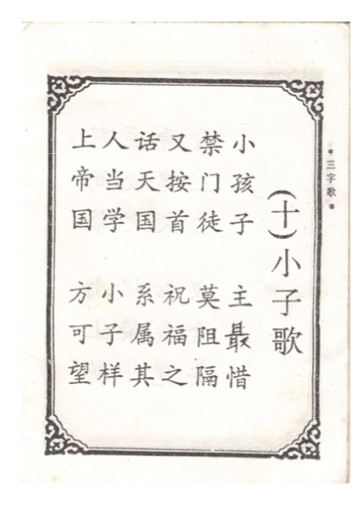 *三字歌*
(十)小子歌
小孩子 主最惜
禁门徒 莫阻隔
又按首 祝福之
话天国 系属其
人当学 小子样
上帝国 方可望